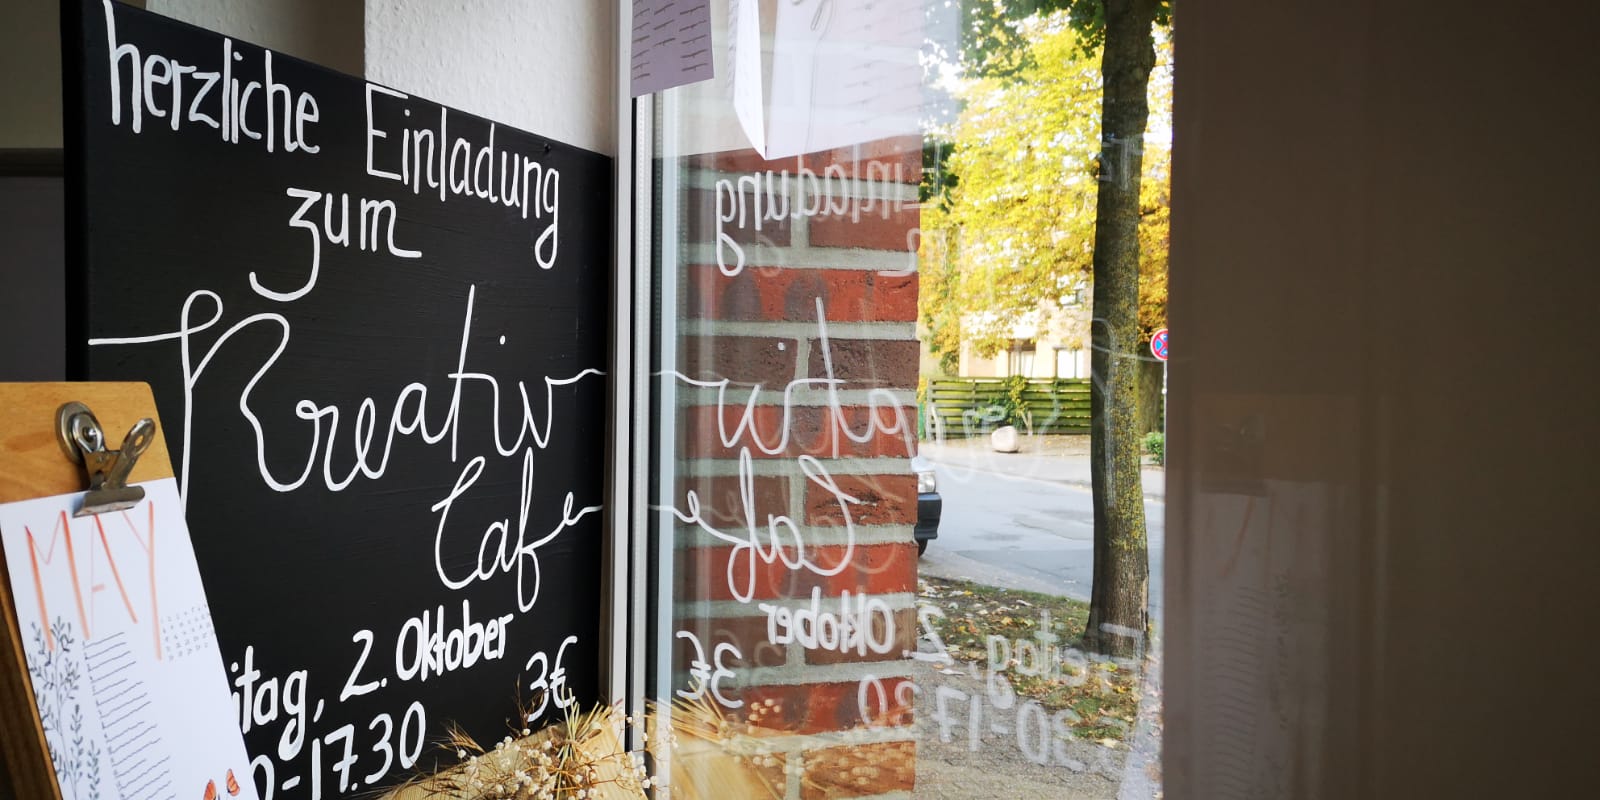 herzliche Einladung
zum
Kreativ
Café
itag, 2. Oktober
0-17.30
3€
MAY